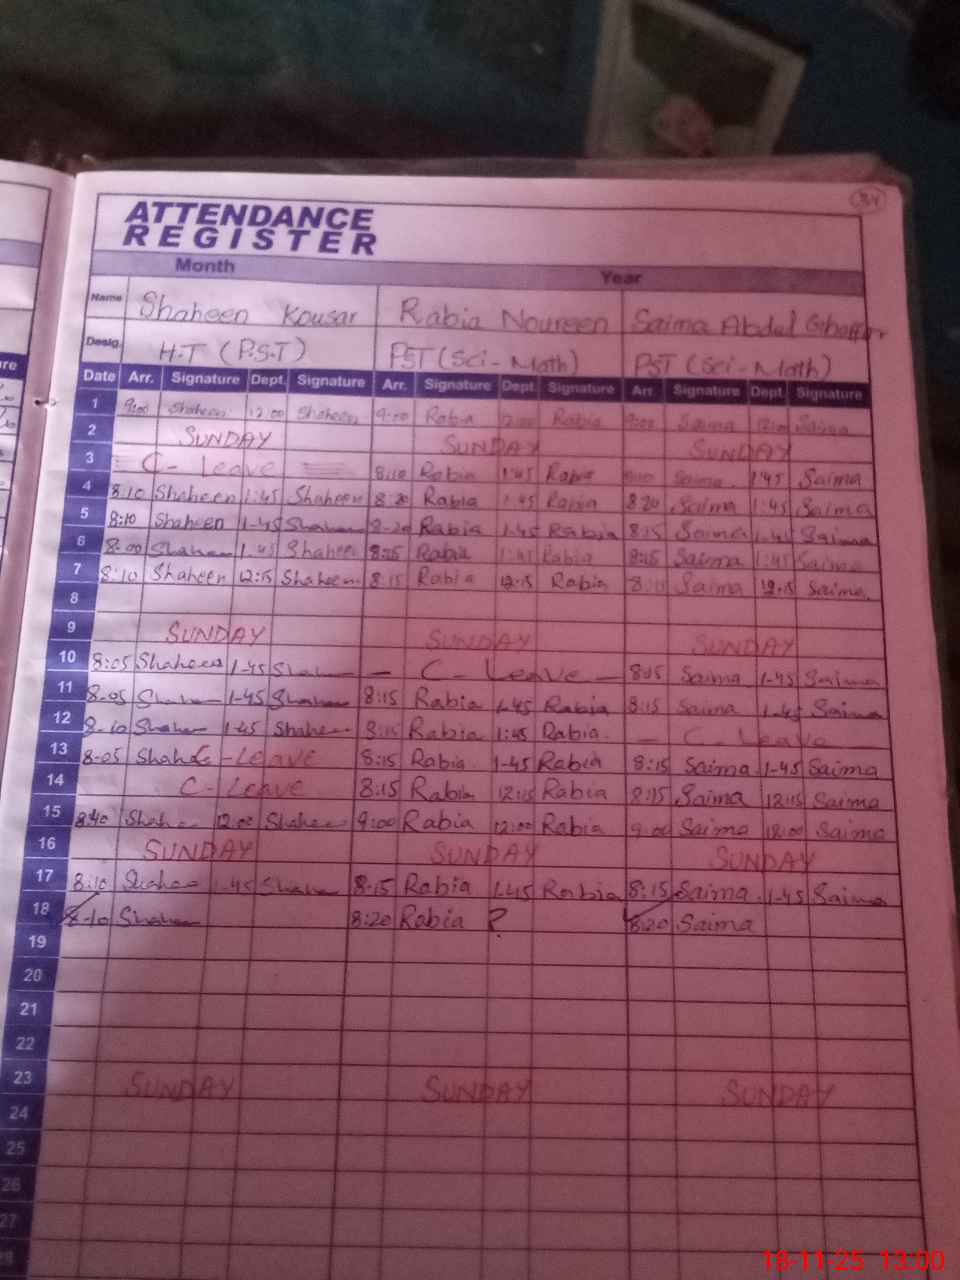 ATTENDANCE
REGISTER
Month Year
Name Shaheen Kousar Rabia Noureen Saima Abdul Ghaffar
Desig. H.T (P.S.T) PST (Sci-Math) PST (Sci-Math)
Date Arr. Signature Dept. Signature Arr. Signature Dept. Signature Arr. Signature Dept. Signature
1 9:00 Shaheen 12:00 Shaheen 9:00 Rabia 12:00 Rabia 9:00 Saima 12:00 Saima
2 SUNDAY SUNDAY SUNDAY
3 C-Leave 8:10 Rabia 1:45 Rabia Saima 1:45 Saima
4 8:10 Shaheen 1:45 Shaheen 8:20 Rabia 1:45 Rabia 8:20 Saima 1:45 Saima
5 8:10 Shaheen 1-45 Shaheen 8-20 Rabia 1-45 Rabia 8:15 Saima 1-45 Saima
6 8:00 Shaheen 1-45 Shaheen 8:15 Rabia 1:45 Rabia 8:15 Saima 1:45 Saima
7 8:10 Shaheen 12:15 Shaheen 8:15 Rabia 12:15 Rabia Saima 12:15 Saima
8
9 SUNDAY SUNDAY SUNDAY
10 8:05 Shaheen 1-45 Shaheen - C-Leave - 8:15 Saima 1-45 Saima
11 8-05 Shaheen 1-45 Shaheen 8:15 Rabia 1:45 Rabia 8:15 Saima 1-45 Saima
12 8-10 Shaheen 1-45 Shaheen 8:15 Rabia 1:45 Rabia - C-Leave
13 8-05 Shahe C-Leave 8:15 Rabia 1-45 Rabia 8:15 Saima 1-45 Saima
14 C-Leave 8:15 Rabia 12:15 Rabia 8:15 Saima 12:15 Saima
15 8:40 Shaheen 12:00 Shaheen 9:00 Rabia 12:00 Rabia 9:00 Saima 12:00 Saima
16 SUNDAY SUNDAY SUNDAY
17 8:10 Shaheen 1-45 Shaheen 8:15 Rabia 1:45 Rabia 8:15 Saima 1-45 Saima
18 8-10 Shaheen 8:20 Rabia ? 8:20 Saima
19
20
21
22
23 SUNDAY SUNDAY SUNDAY
24
25
26
27
18-11-25 13:00